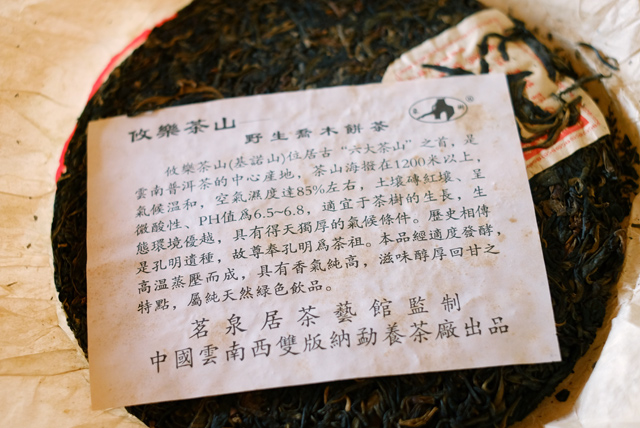 攸樂茶山
野生喬木餅茶
攸樂茶山(基諾山)位居古“六大茶山”之首，是
雲南普洱茶的中心產地，茶山海拔在1200米以上，
氣候溫和，空氣濕度達85%左右，土壤磚紅壤、呈
微酸性、PH值爲6.5~6.8，適宜于茶樹的生長，生
態環境優越，具有得天獨厚的氣候條件。歷史相傳
是孔明遺種，故尊奉孔明爲茶祖。本品經適度發酵，
高温蒸壓而成，具有香氣純高，滋味醇厚回甘之
特點，屬純天然綠色飲品。
茗泉居茶藝館監制
中國雲南西雙版納勐養茶廠出品